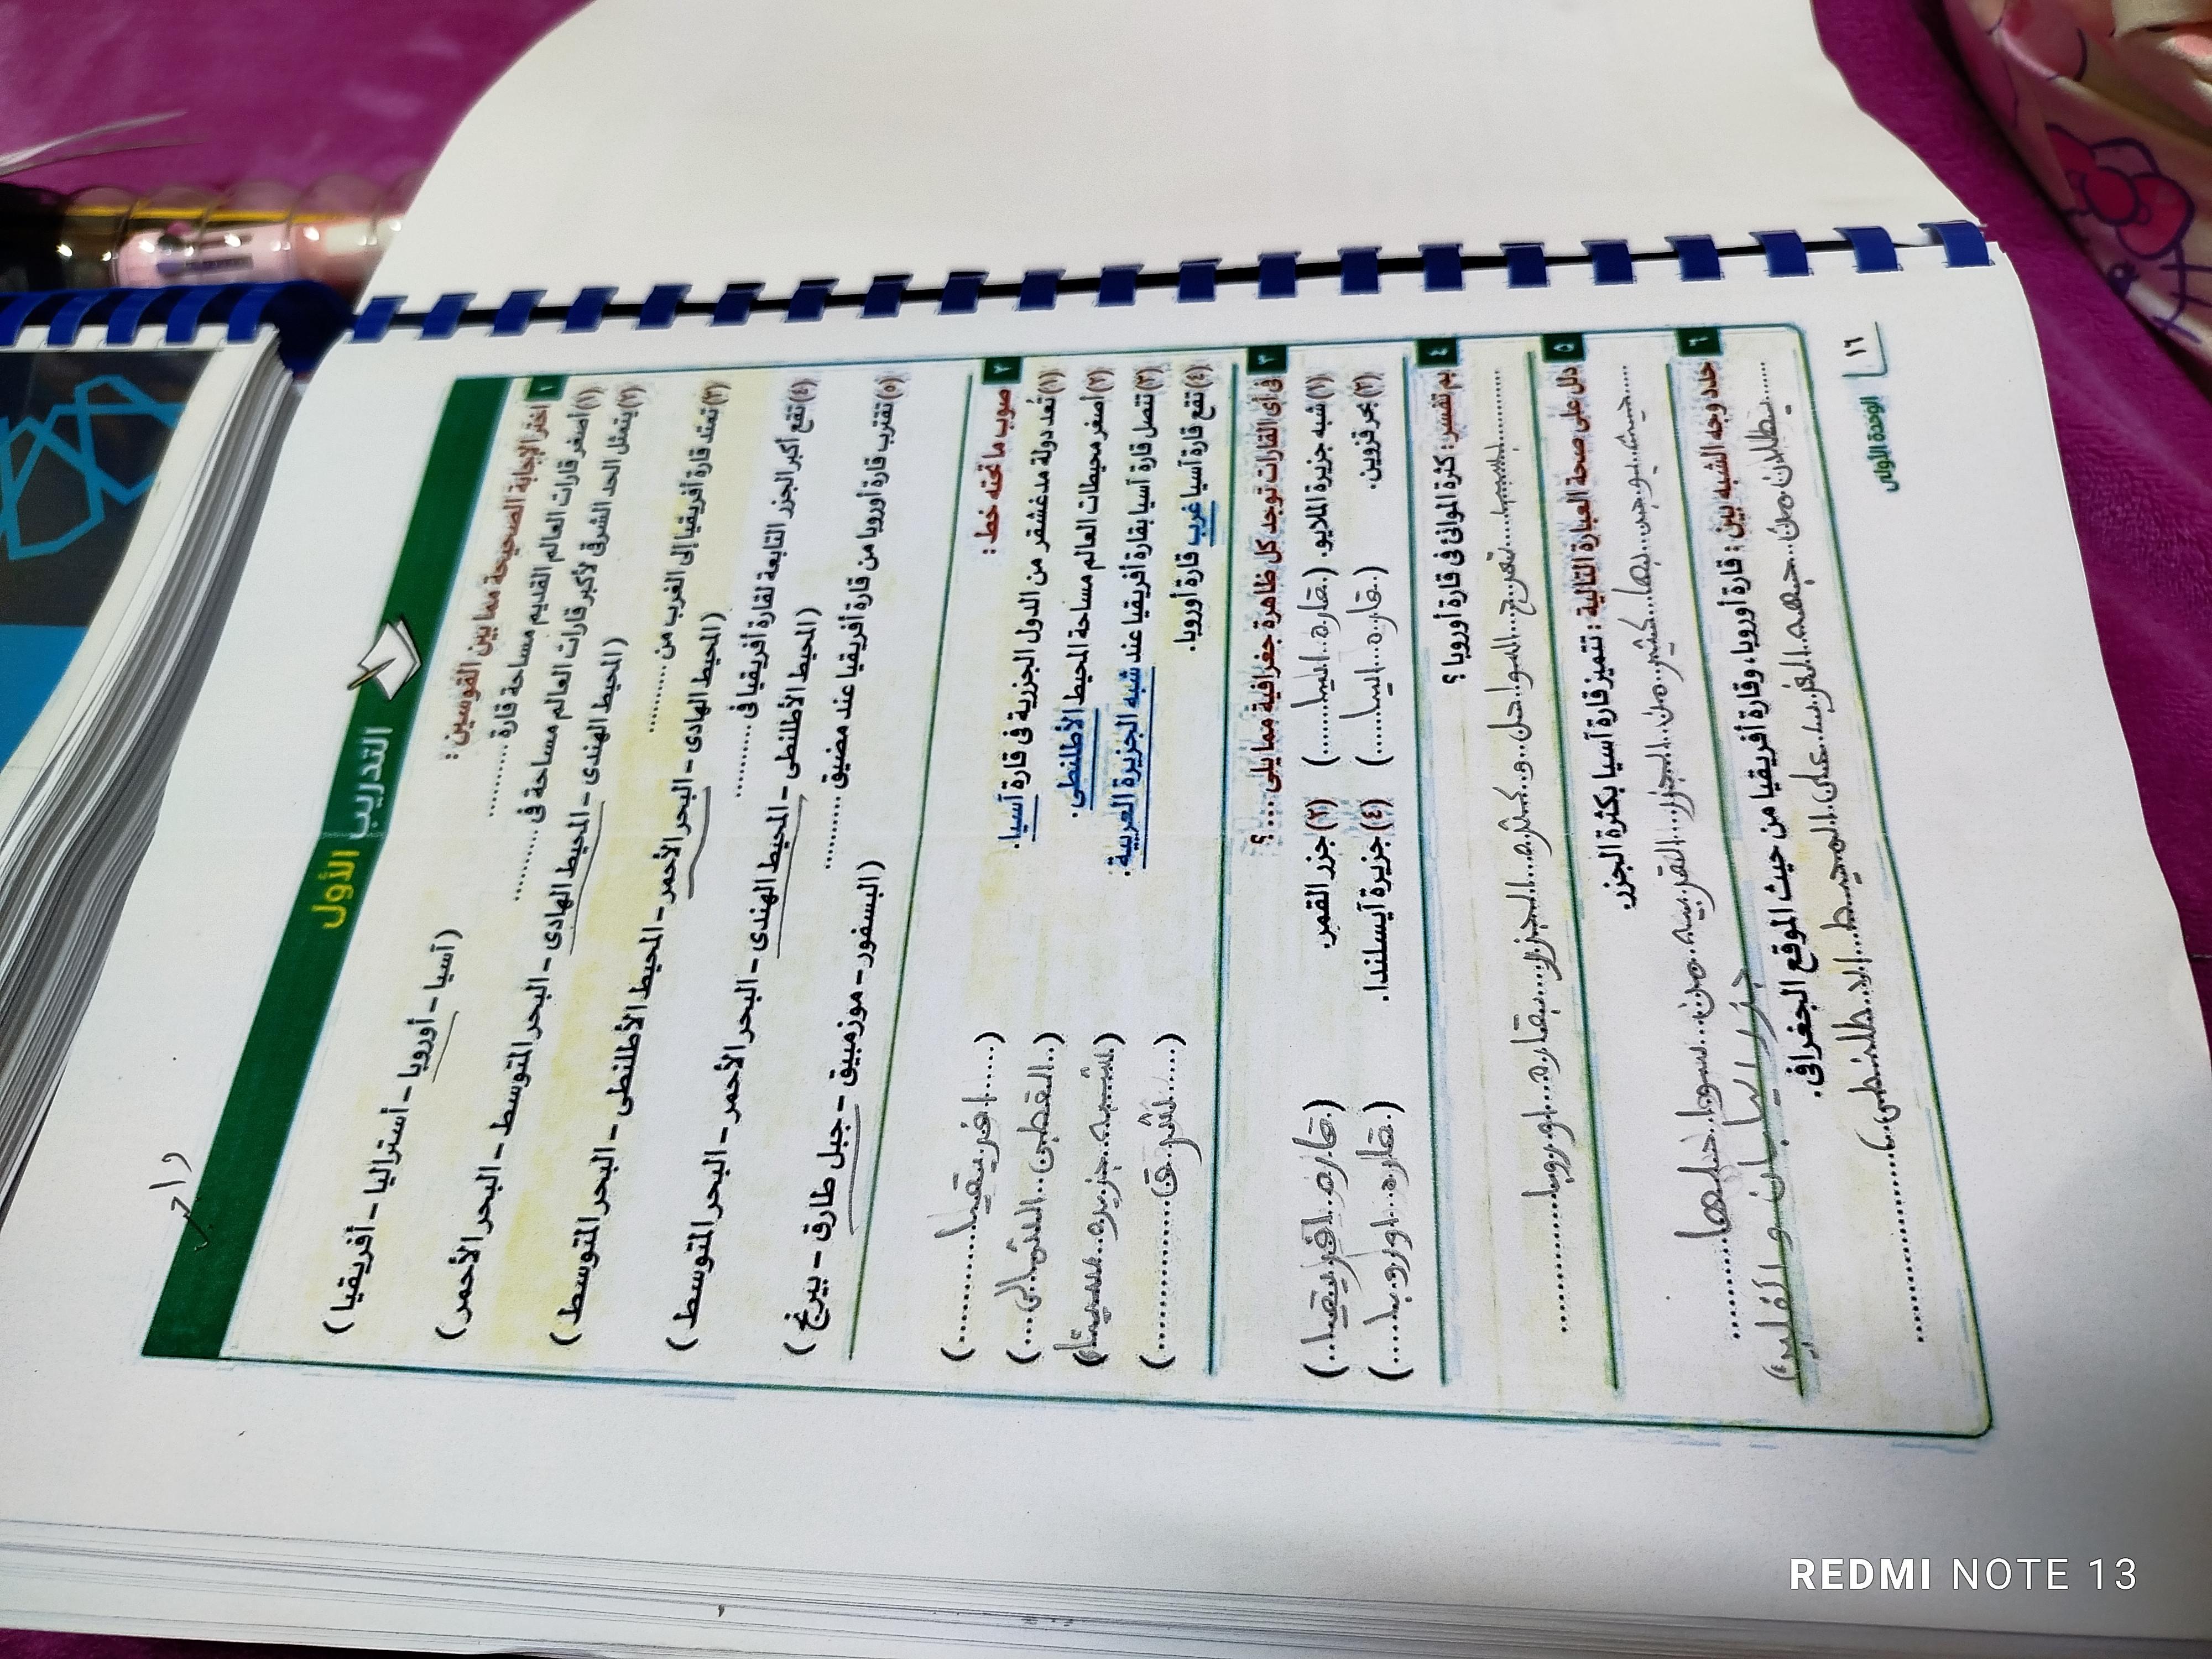 التدريب الأول
١ اختر الإجابة الصحيحة مما بين القوسين :
(١) أصغر قارات العالم القديم مساحة قارة ..........
(آسيا – أوروبا – أستراليا – أفريقيا)
(٢) يتمثل الحد الشرقى لأكبر قارات العالم مساحة فى ..........
(المحيط الهندى – المحيط الهادى – البحر المتوسط – البحر الأحمر)
(٣) تمتد قارة أفريقيا إلى الغرب من ..........
(المحيط الهادى – البحر الأحمر – المحيط الأطلنطى – البحر المتوسط)
(٤) تقع أكبر الجزر التابعة لقارة أفريقيا فى ..........
(المحيط الأطلنطى – المحيط الهندى – البحر الأحمر – البحر المتوسط)
(٥) تقترب قارة أوروبا من قارة أفريقيا عند مضيق ..........
(البسفور – موزمبيق – جبل طارق – بيرنج)
٢ صوب ما تحته خط :
(١) تعد دولة مدغشقر من الدول الجزرية فى قارة آسيا. (افريقيا)
(٢) أصغر محيطات العالم مساحة المحيط الأطلنطى. (القطبى الشمالى)
(٣) تتصل قارة آسيا بقارة أفريقيا عند شبه الجزيرة العربية. (شبه جزيره سيناء)
(٤) تقع قارة آسيا غرب قارة أوروبا. (شرق)
٣ فى أى القارات توجد كل ظاهرة جغرافية مما يلى ... ؟
(١) شبه جزيرة الملايو. (قاره اسيا) (٢) جزر القمر. (قاره افريقيا)
(٣) بحر قزوين. (قاره اسيا) (٤) جزيرة آيسلندا. (قاره اوروبا)
٤ بم تفسر : كثرة الموانئ فى قارة أوروبا ؟
بسبب تعرج السواحل و كثره الجزر بقاره اوروبا
٥ دلل على صحة العبارة التالية : تتميز قارة آسيا بكثرة الجزر.
حيث يوجد بها كثير من الجزر القريبه من سواحلها
جزر اليابان و الفلبين
٦ حدد وجه الشبه بين : قارة أوروبا، وقارة أفريقيا من حيث الموقع الجغرافى.
يطلان من جهه الغرب على المحيط الاطلنطى
١٦ الوحدة الأولى
REDMI NOTE 13